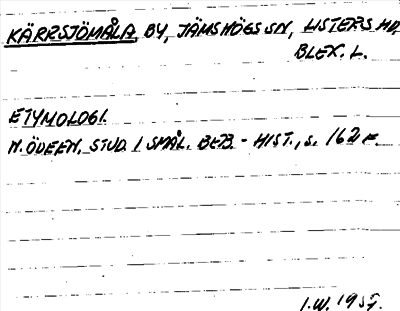 KÄRRSJÖMÅLA BY, JÄMSHÖGS SN, LISTERS HD,
BLEK. L.
ETYMOLOGI.
N. ÖDEEN, STUD. I SMÅL. BEB. - HIST., s. 162 F.
I.W. 1957.